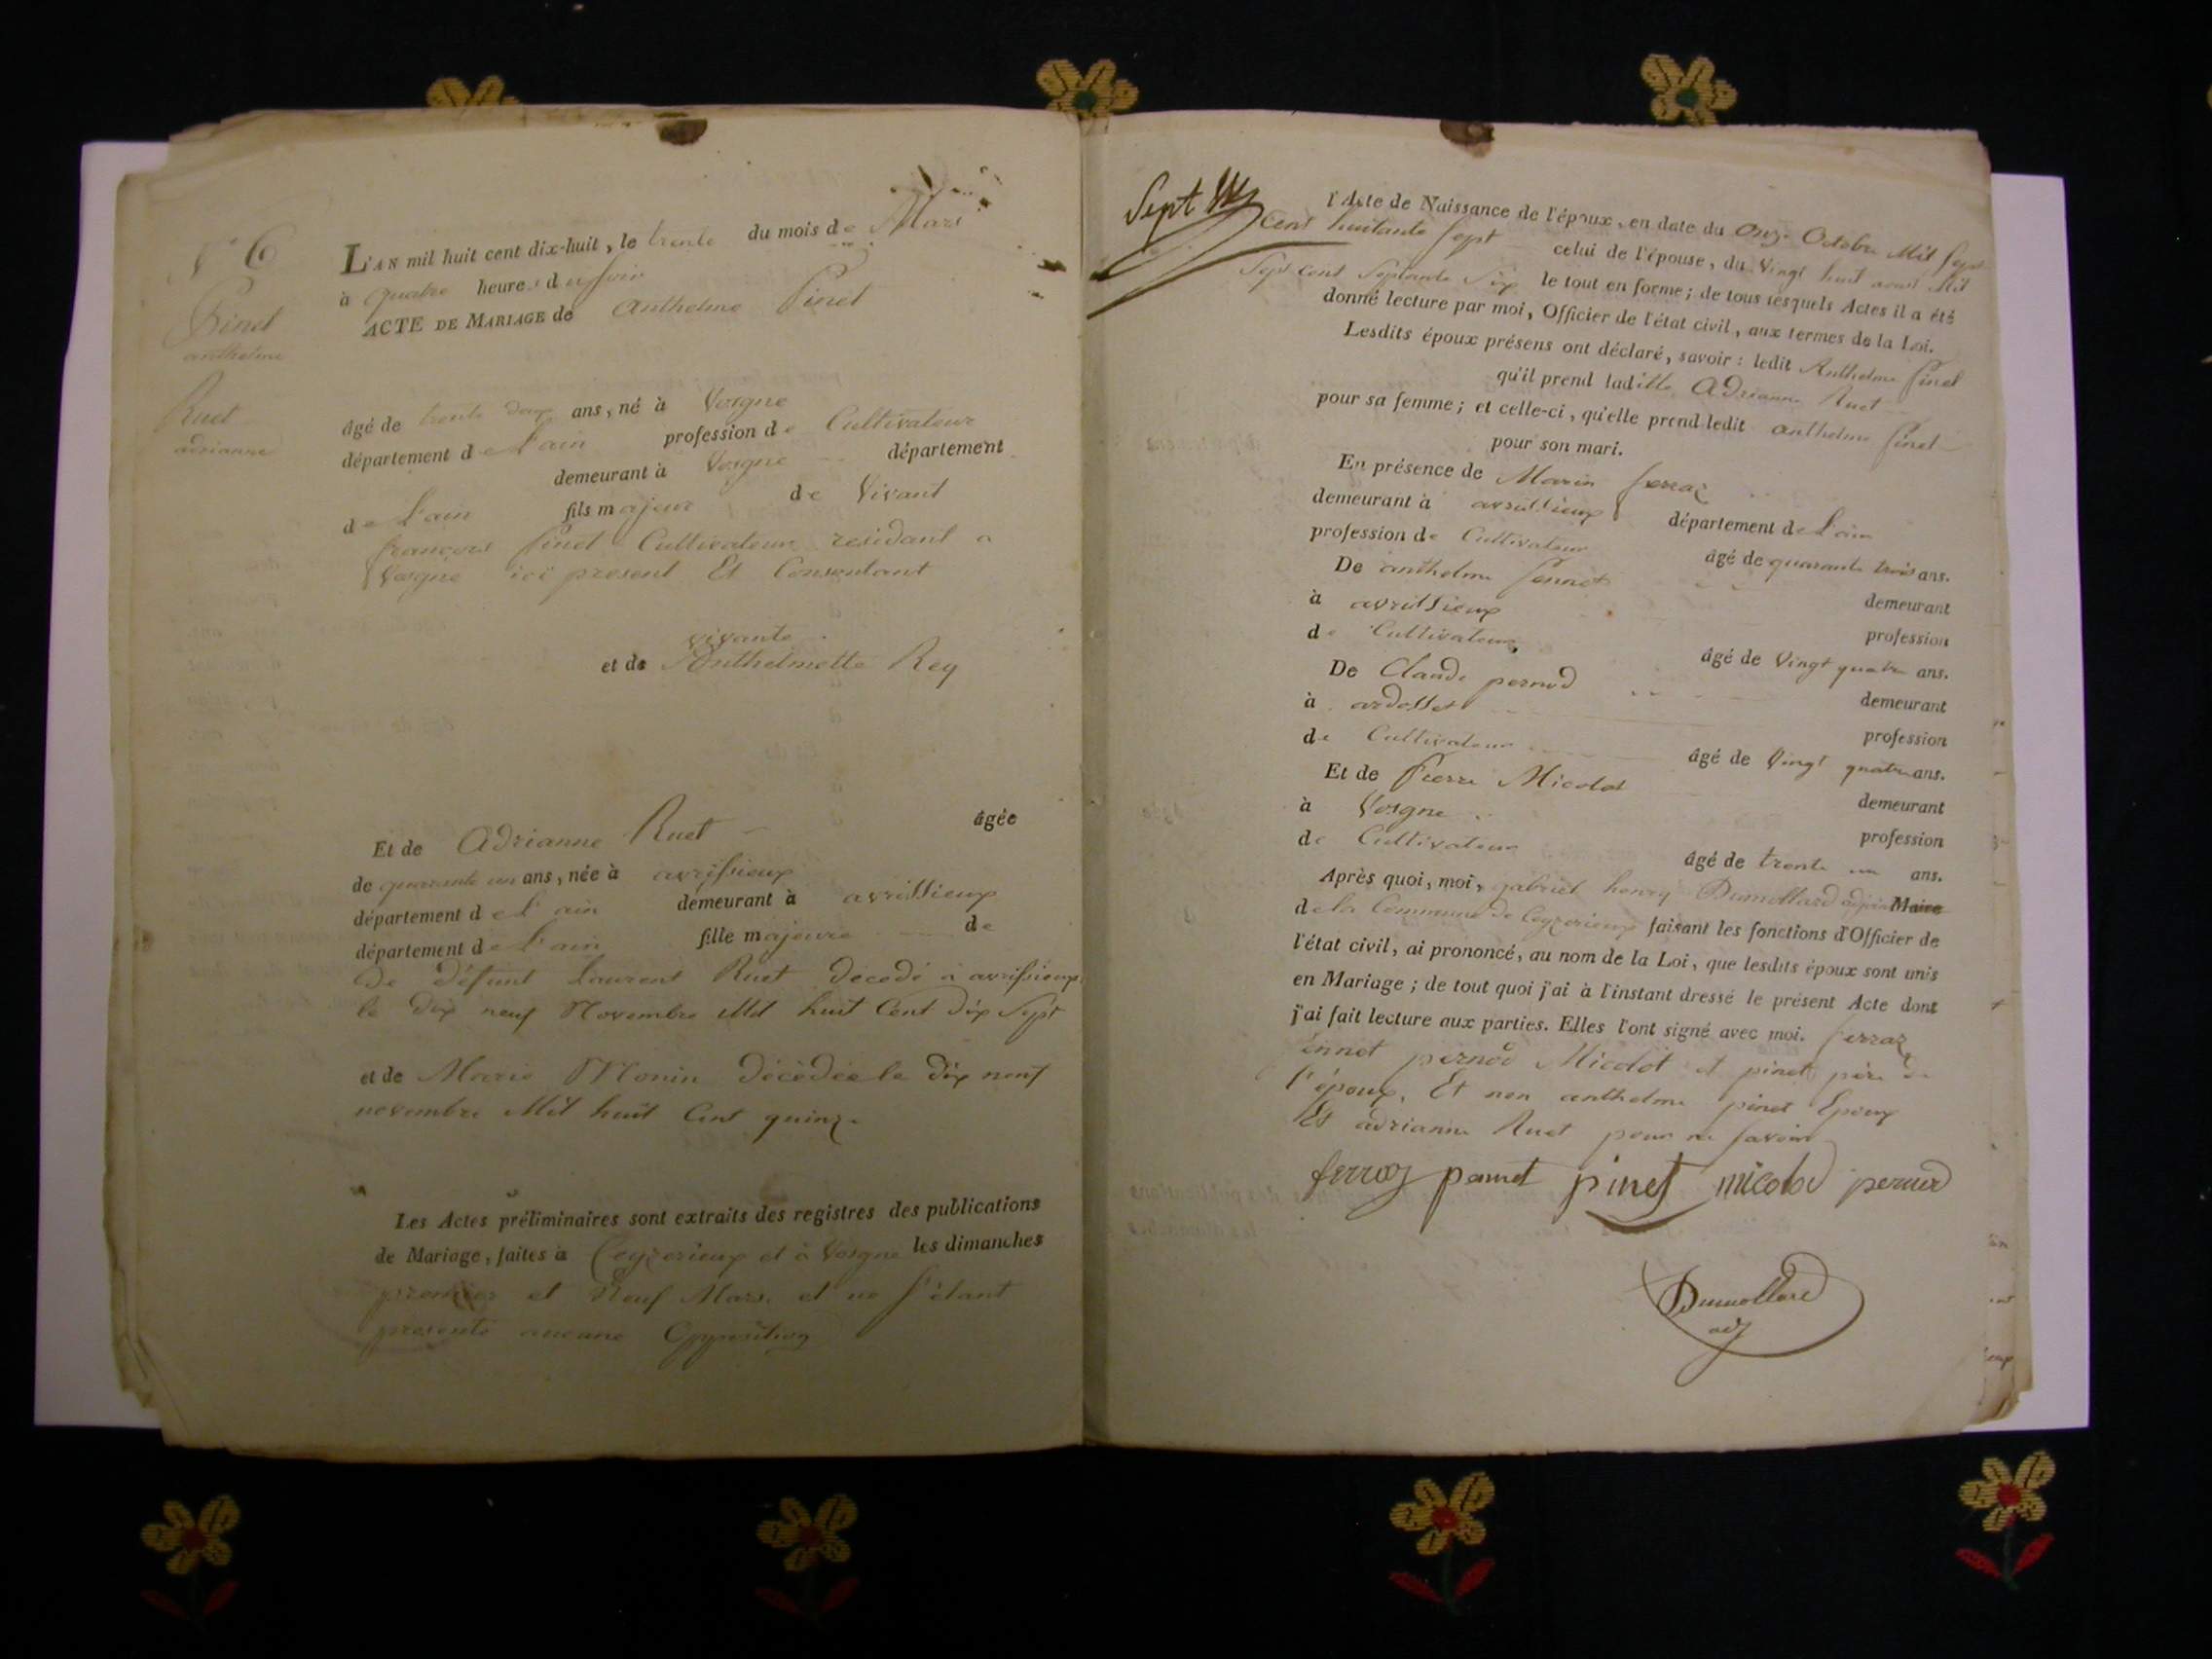 N° 6
Pinet
anthelme
Ruet
adrianne
L'AN mil huit cent dix-huit, le trente du mois de Mars
à quatre heures du soir
ACTE DE MARIAGE de Anthelme Pinet
âgé de trente deux ans, né à Vorgne
département de l'ain profession de Cultivateur
demeurant à Vorgne département
de l'ain fils majeur de Vivant
françois pinet Cultivateur residant a
Vorgne ici present Et Consentant
vivante
et de Anthelmette Rey
Et de Adrianne Ruet âgée
de quarante un ans, née à avrissieux
département de l'ain demeurant à avrissieux
département de l'ain fille majeure de
De défunt Laurent Ruet decedé à avrissieux
le dix neuf Novembre Mil huit Cent dix Sept
et de Marie Monin décèdée le dix neuf
novembre Mil huit Cent quinze
Les Actes préliminaires sont extraits des registres des publications
de Mariage, faites à Ceyzerieux et à Vorgne les dimanches
premier et Neuf Mars et ne s'étant
presenté aucune Opposition
Sept
l'Acte de Naissance de l'époux, en date du Onze Octobre Mil Sept
Cent huitante Sept celui de l'épouse, du Vingt huit aoust Mil
Sept cent Septante Six le tout en forme; de tous lesquels Actes il a été
donné lecture par moi, Officier de l'état civil, aux termes de la Loi.
Lesdits époux présens ont déclaré, savoir: ledit Anthelme Pinet
qu'il prend laditte Adrianne Ruet
pour sa femme; et celle-ci, qu'elle prend ledit anthelme Pinet
pour son mari.
En présence de Marin ferraz
demeurant à avrissieux département de l'ain
profession de Cultivateur âgé de quarante trois ans.
De anthelme pennet demeurant
à avrissieux profession
de Cultivateur âgé de Vingt quatre ans.
De Claude pernod demeurant
à ardosset profession
de Cultivateur âgé de Vingt quatre ans.
Et de Pierre Micolot demeurant
à Vorgne profession
de Cultivateur âgé de trente un ans.
Après quoi, moi, gabriel henry Dumollard adjoint Maire
de la Commune de Ceyzerieux faisant les fonctions d'Officier de
l'état civil, ai prononcé, au nom de la Loi, que lesdits époux sont unis
en Mariage; de tout quoi j'ai à l'instant dressé le présent Acte dont
j'ai fait lecture aux parties. Elles l'ont signé avec moi. ferraz
pennet pernod Micolot et pinet père de
l'époux, Et non anthelme pinet Epoux
Et adrianne Ruet pour ne savoir
ferraz pennet pinet micolod pernod
Dumollard
adj